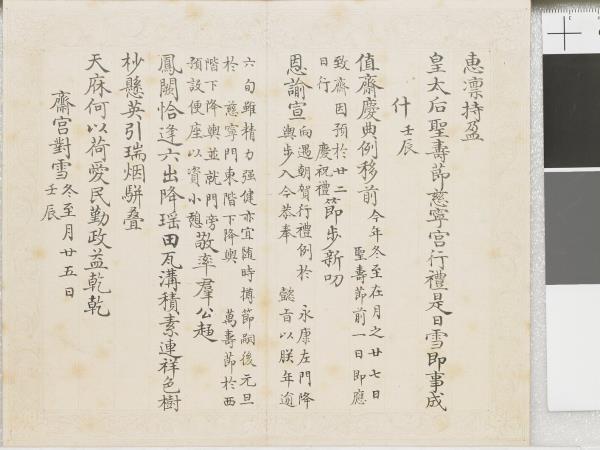 惠凛持盈
皇太后聖壽節慈寧宮行禮是日雪即事成
什壬辰
值齋慶典例移前今年冬至在月之廿七日
聖壽節前一日即應
致齋因預於廿二
日行慶祝禮節步新叨
恩諭宣向遇朝賀行禮例於永康左門降
輿步入今恭奉懿旨以朕年逾
六旬雖精力强健亦宜随時撙節嗣後元旦
於慈寧門東階下降輿萬壽節於西
階下降輿並就門旁
預設便座以資小憩敬率羣公趨
鳳闕恰逢六出降瑤田瓦溝積素連祥色樹
杪懸英引瑞烟駢叠
天庥何以荷愛民勤政益乾乾
齋宮對雪冬至月廿五日
壬辰